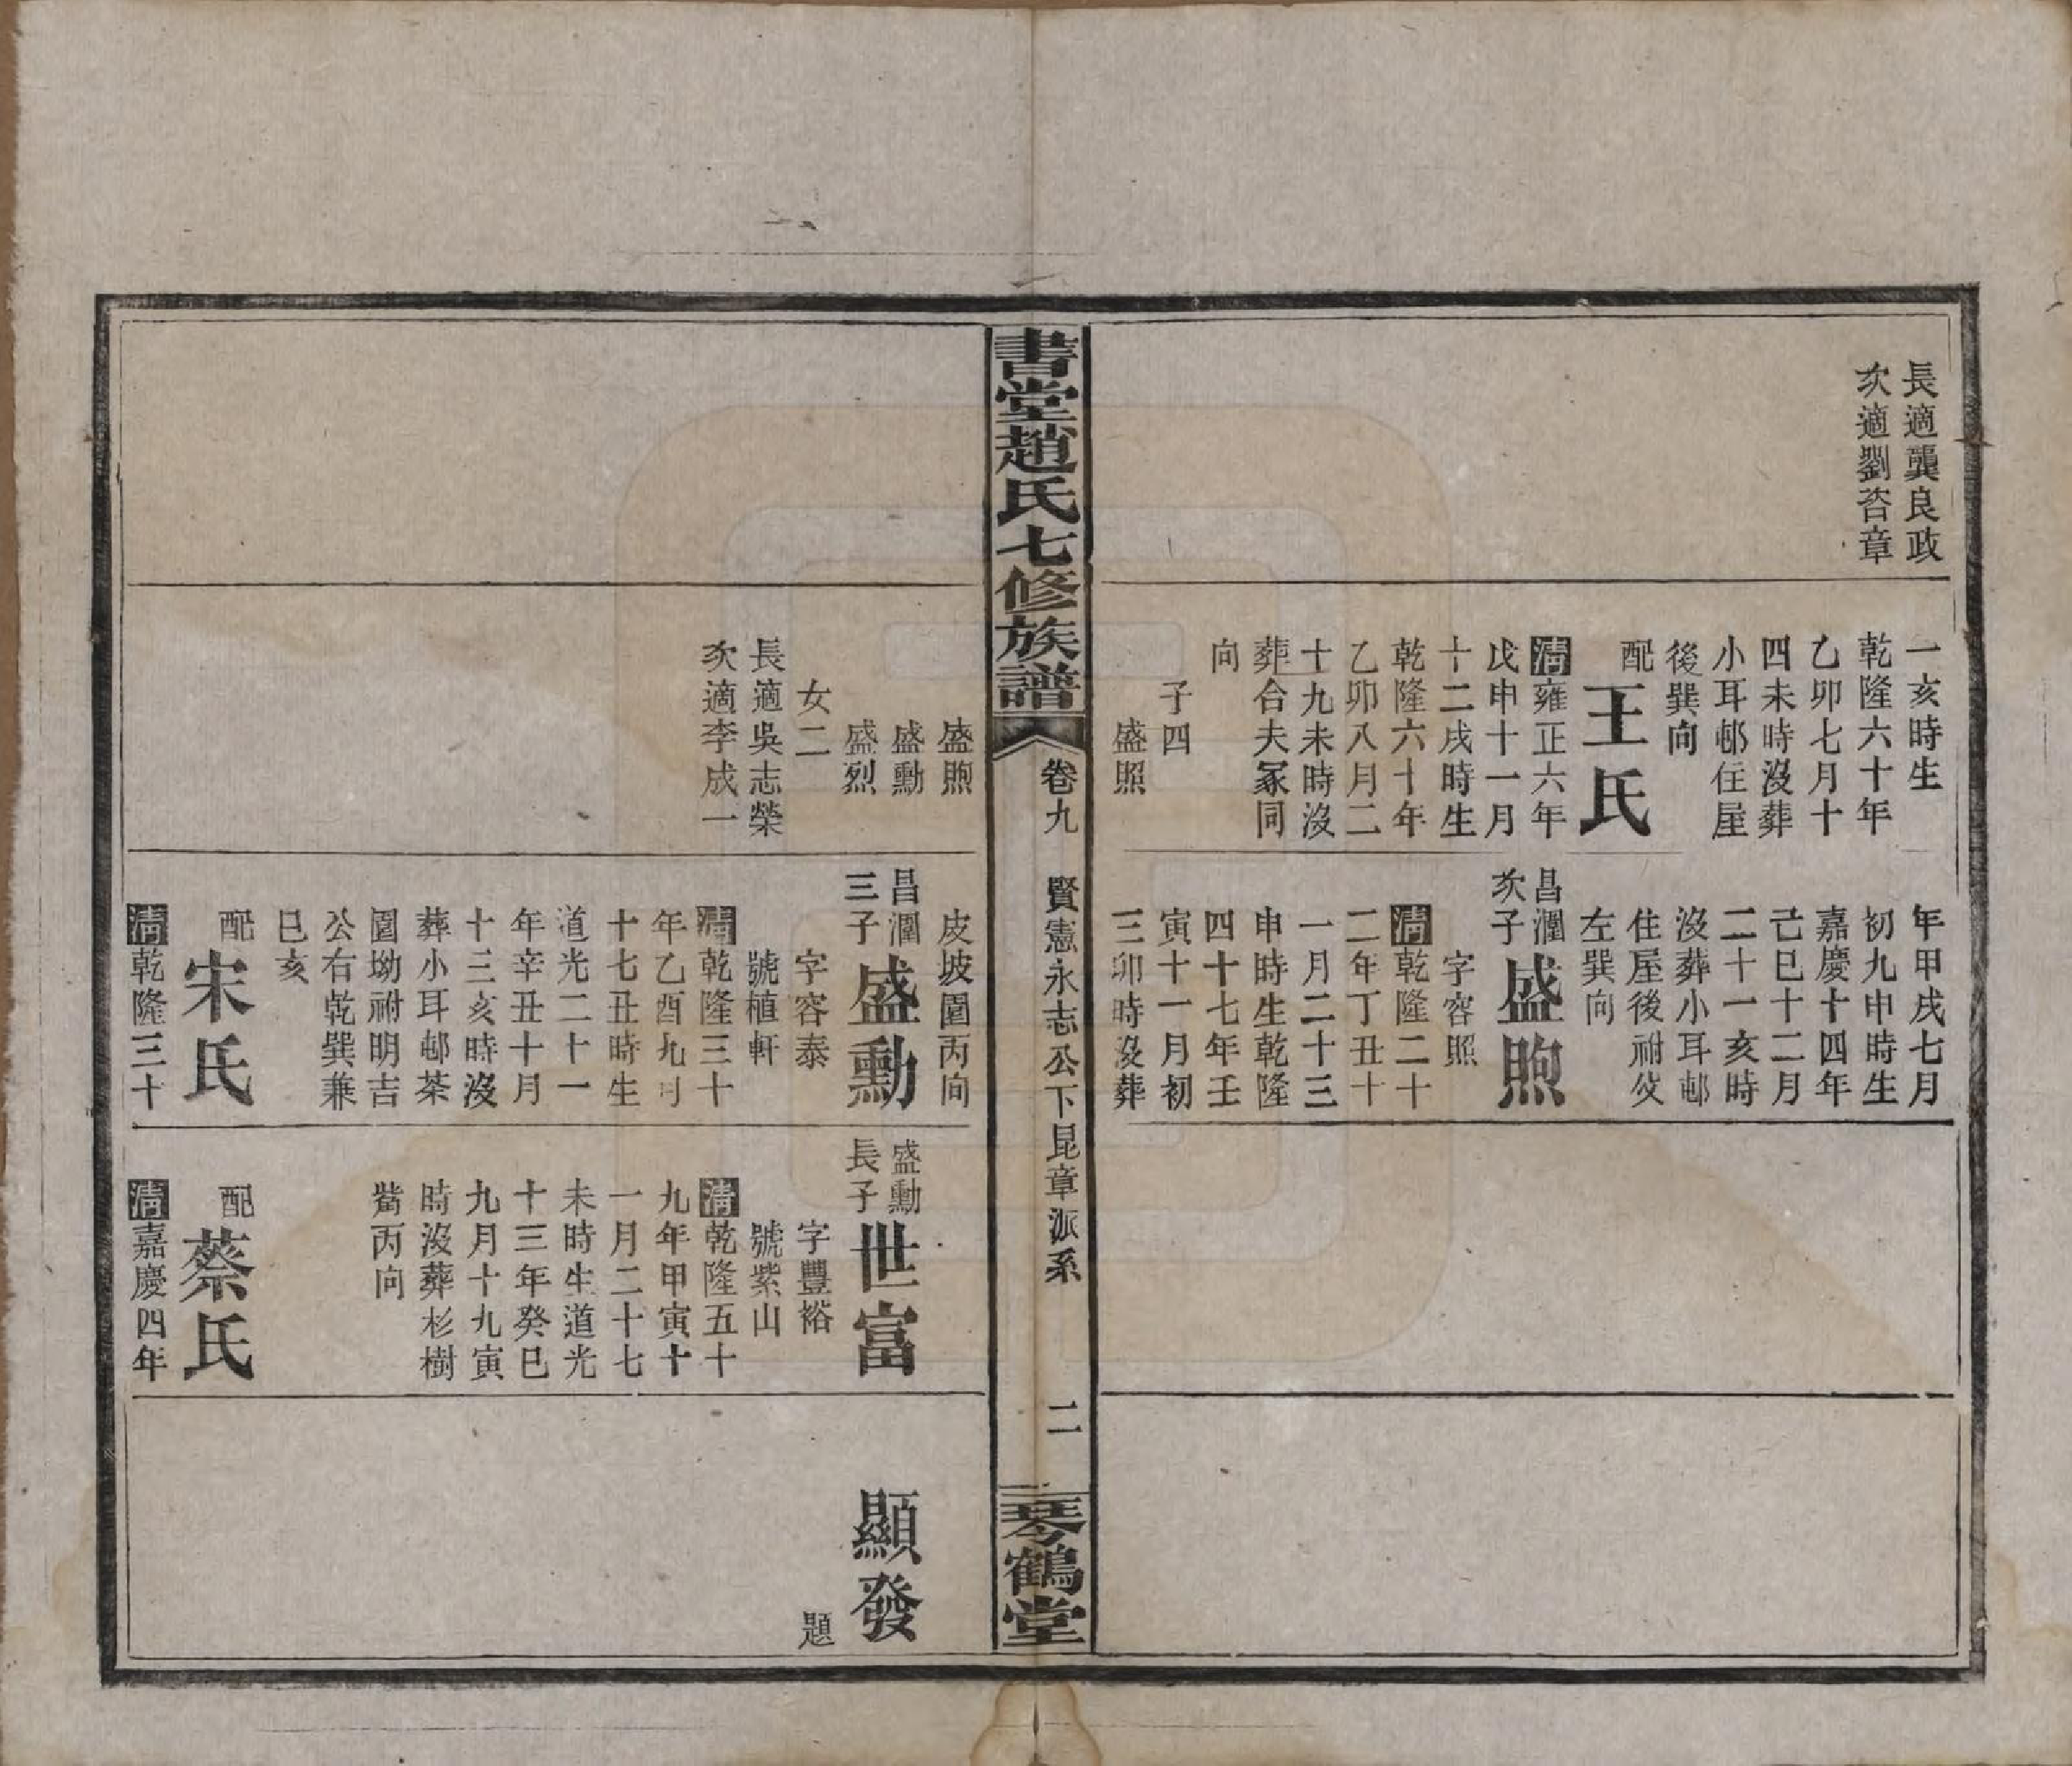 長適龔良政
次適劉荅章
一亥時生
乾隆六十年
乙卯七月十
四未時沒葬
小耳邨住屋
後巽向
配
王氏
清雍正六年
戊申十一月
十二戌時生
乾隆六十年
乙卯八月二
十九未時沒
葬合夫冢同
向
子四
盛照
年甲戌七月
初九申時生
嘉慶十四年
己巳十二月
二十一亥時
沒葬小耳邨
住屋後祔父
左巽向
昌瀾
次子
盛煦
字容照
清乾隆二十
二年丁丑十
一月二十三
申時生乾隆
四十七年壬
寅十一月初
三卯時沒葬
書堂趙氏七修族譜
卷九
賢憲永志公下昆章派系
二
琴鶴堂
盛煦
盛勳
盛烈
女二
長適吳志榮
次適李成一
皮坡園丙向
昌瀾
三子
盛勳
字容泰
號植軒
清乾隆三十
年乙酉九月
十七丑時生
道光二十一
年辛丑十月
十三亥時沒
葬小耳邨茶
園坳祔明吉
公右乾巽兼
巳亥
配
宋氏
清乾隆三十
盛勳
長子
世富
字豐裕
號紫山
清乾隆五十
九年甲寅十
一月二十七
未時生道光
十三年癸巳
九月十九寅
時沒葬杉樹
嵴丙向
配
蔡氏
清嘉慶四年
顯發
題